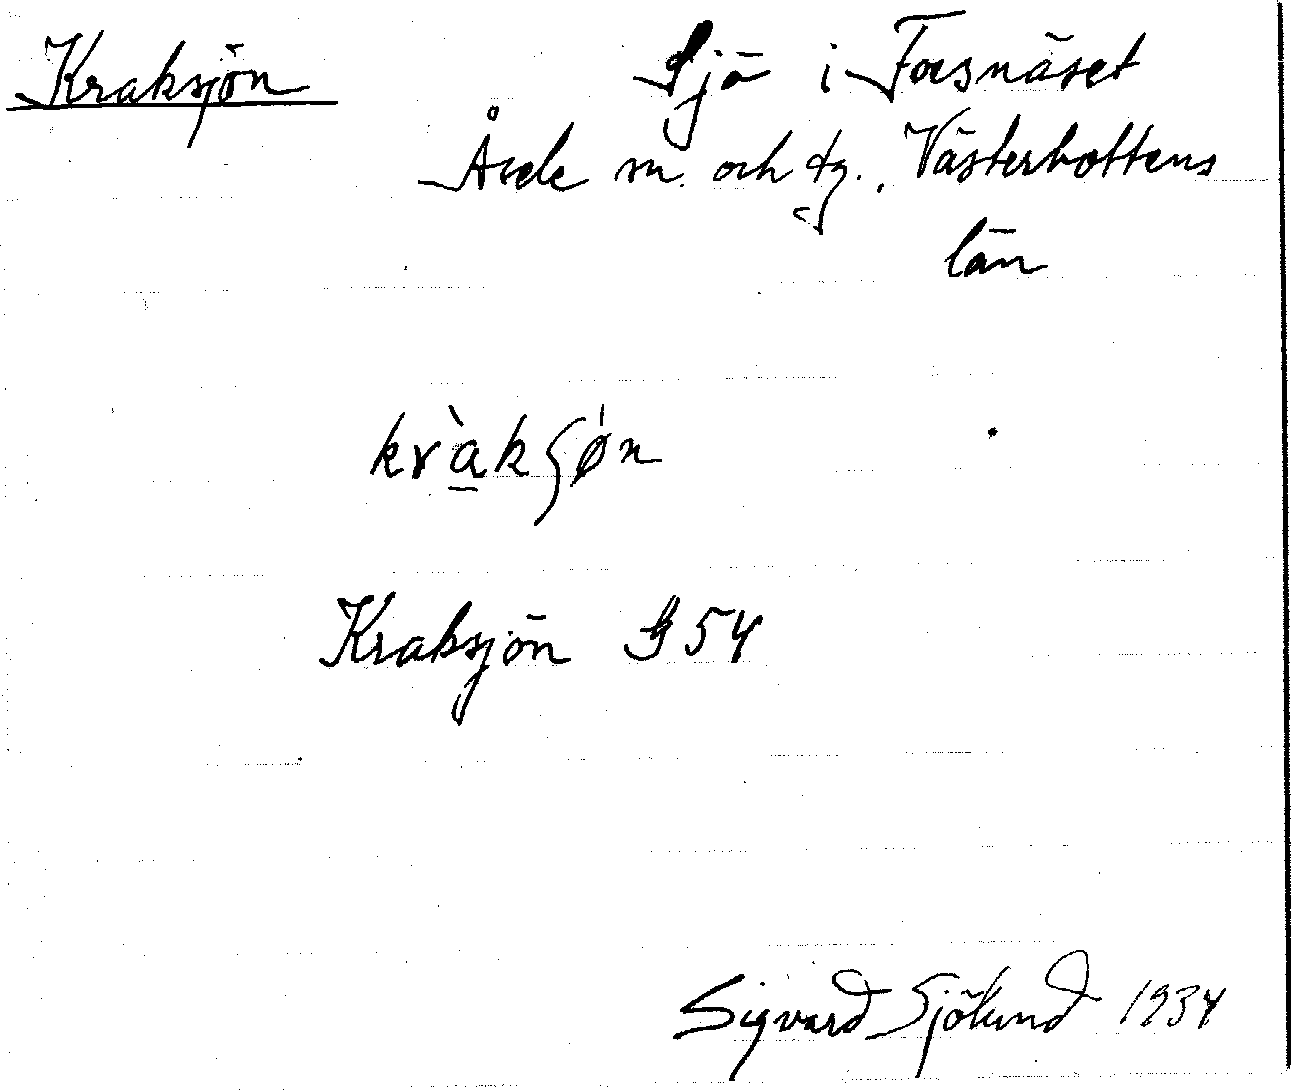 Kraksjön Sjö i Forsnäset
Åsele sn. och tg., Västerbottens
län
kràkʃøn
Kraksjön G 54
Sigvard Sjölund 1934